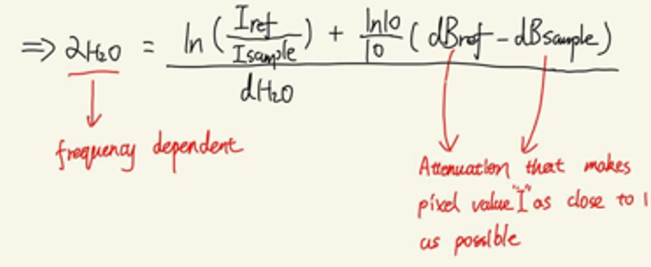 ⇒ α_H₂O = ( ln( I_ref / I_sample ) + ln10/10 ( dB_ref - dB_sample ) ) / d_H₂O
frequency dependent
Attenuation that makes
pixel value "I" as close to 1
as possible